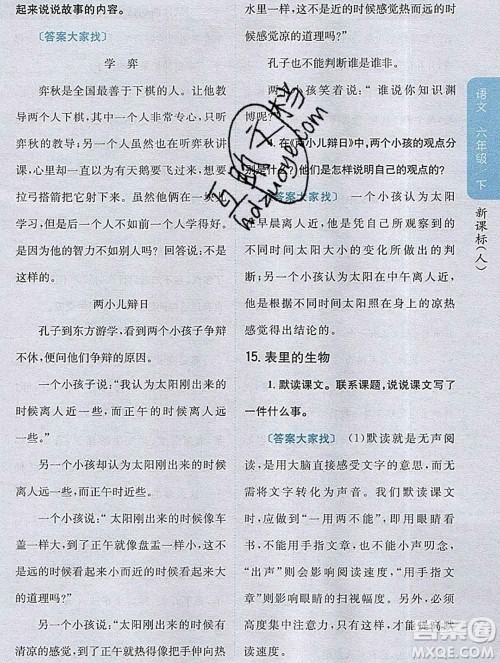 起来说说故事的内容。
〔答案大家找〕
学 弈
弈秋是全国最善于下棋的人。让他教
导两个人下棋，其中一个人非常专心，只听
弈秋的教导；另一个人虽然也在听弈秋讲
课，心里却一直以为有天鹅要飞过来，想要
拉弓搭箭把它射下来。虽然他俩在一块
学习，但是后一个人不如前一个人学得好。
因为他的智力不如别人吗？回答说：不是
这样的。
两小儿辩日
孔子到东方游学，看到两个小孩子争辩
不休，便问他们争辩的原因。
一个小孩子说：“我认为太阳刚出来的
时候离人近一些，而正午的时候离人远
一些。”
另一个小孩却认为太阳刚出来的时候
离人远一些，而正午时近些。
一个小孩说：“太阳刚出来的时候像车
盖一样大，到了正午就像盘子一样小，这不
是远的时候看起来小而近的时候看起来大
的道理吗？”
另一个小孩说：“太阳刚出来的时候清
凉，到了正午就热得像把手伸向热
水里一样，这不是近的时候感觉热而远的时
候感觉凉的道理吗？
孔子也不能判断谁是谁非。
两个小孩笑着说：“谁说你知识渊
博呢？”
4. 在《两小儿辩日》中，两个小孩的观点分
别是什么？他们是怎样说明自己的观点的？
〔答案大家找〕一个小孩认为太阳
在早晨离人近，他是凭自己所观察到的
不同时间太阳大小的变化所做出的判
断；另一个小孩认为太阳在中午离人近，
他是根据不同时间太阳照在身上的凉热
感觉得出结论的。
15. 表里的生物
1. 默读课文。联系课题，说说课文写了
一件什么事。
〔答案大家找〕（1）默读就是无声阅
读，是用大脑直接感受文字的意思，而无
需将文字转化为声音。我们默读课文
时，应做到“一用两不能”，即用眼睛看
书，不能用手指文章，也不能小声唸念，
“出声”则会影响阅读速度，“用手指文
章”则影响眼睛的扫视幅度。另外，需要
高度集中注意力，只有这样，才能在阅读速
语文 六年级 下
新课标（人）
百助文档
hdzuoye.com
答案圈
MXQE.COM